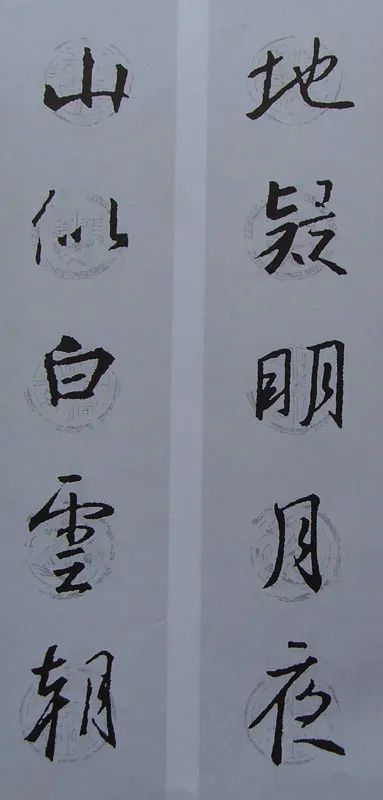 地疑明月夜
山似白雲朝